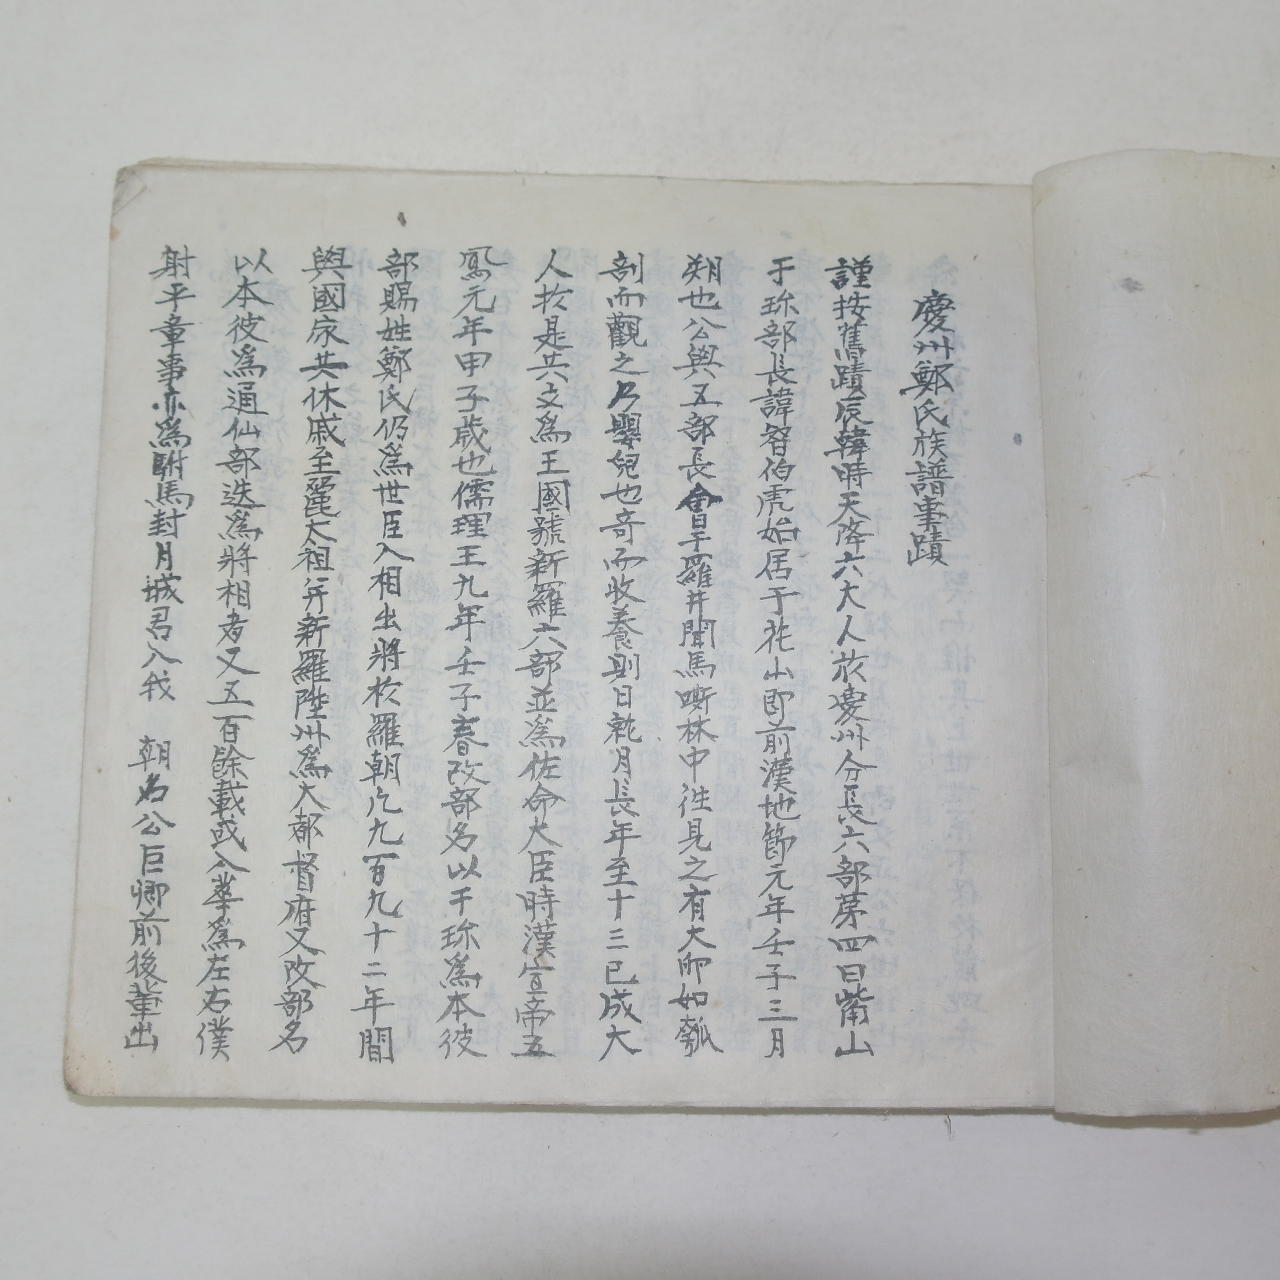 慶州鄭氏族譜事蹟
謹按舊蹟辰韓時天降六大人於慶州分長六部苐四曰觜山
于珎部長諱智伯虎始居于花山即前漢地節元年壬子三月
朔也公與五部長會于羅井聞馬嘶林中徃見之有大卵如瓠
剖而觀之乃嬰兒也奇而收養則日就月長年至十三已成大
人扵是共立爲王國號新羅六部並爲佐命大臣時漢宣帝五
鳳元年甲子歲也儒理王九年壬子春改部名以干珎爲本彼
部賜姓鄭氏仍爲世臣入相出將扵羅朝凢九百九十二年間
與國家共休戚至麗太祖并新羅陞州爲大都督府又改部名
以本彼爲通仙部迭爲將相者又五百餘載或入拳爲左右僕
射平章事亦爲駙馬封月城君入我 朝名公巨卿前後輩出